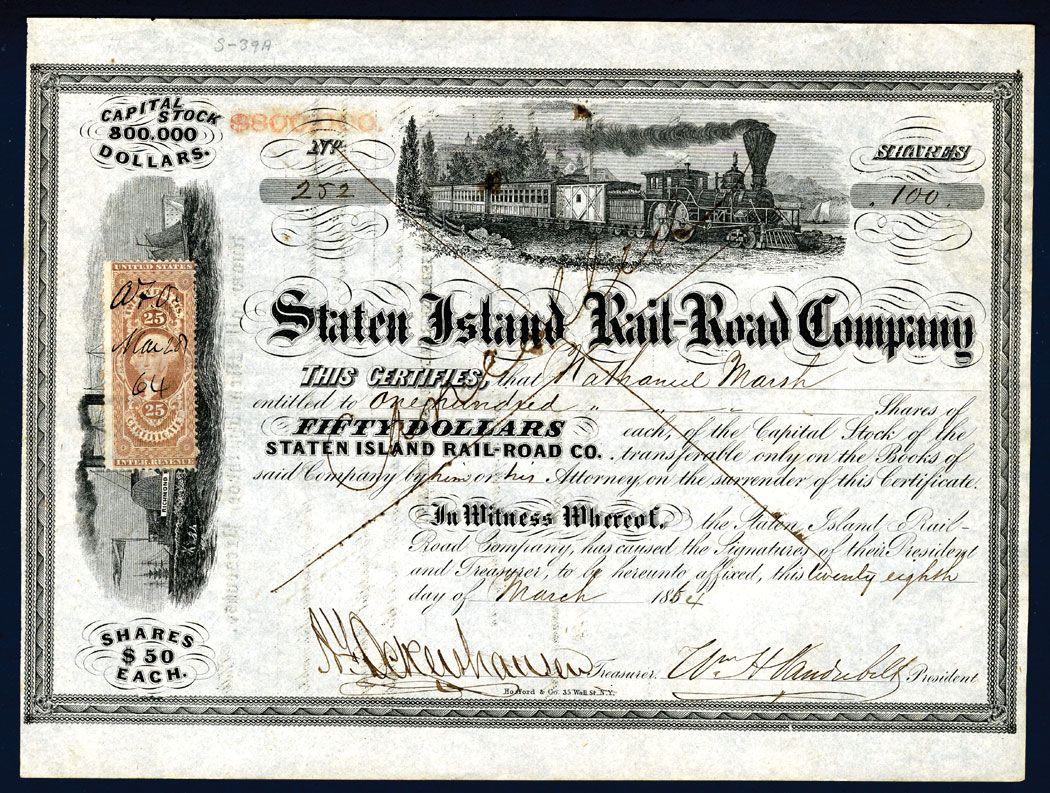 S-39A
CAPITAL STOCK
800,000
DOLLARS.
$800,000.
No.
252
SHARES
100
Staten Island Rail-Road Company
THIS CERTIFIES, that Nathaniel Marsh
entitled to One hundred " " " Shares of
FIFTY DOLLARS each, of the Capital Stock of the
STATEN ISLAND RAIL-ROAD CO. transferable only on the Books of
said Company by him or his Attorney, on the surrender of this Certificate.
In Witness Whereof, the Staten Island Rail-
Road Company, has caused the Signatures of their President
and Treasurer, to be hereunto affixed, this twenty eighth
day of March 1864
UNITED STATES
25
Mar 28
64
25
CERTIFICATE
INTER. REVENUE
RICHMOND
Cancelled
SHARES
$50
EACH.
Treasurer. Wm H Vanderbilt President
Hosford & Co. 35 Wall St. N.Y.